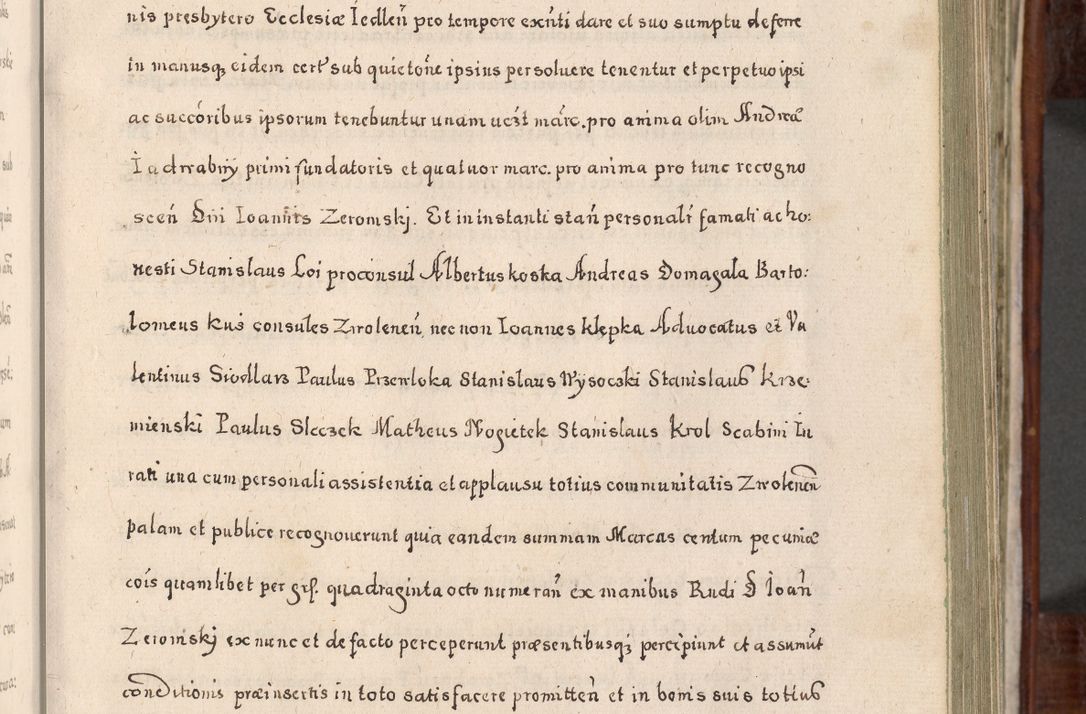 nis presbytero Ecclesiæ Iedleń pro tempore exńti dare et suo sumptu deferre
in manusq, eidem cert sub quietońe ipsius persoluere tenentur et perpetuo ipsi
ac succóribus ipsorum tenebuntur unam uczt marc. pro anima olim Andreæ
Iadwabny primi fundatoris et quatuor marc. pro anima pro tunc recogno
sceń Dńi Ioannis Zeromskj. Et in instanti stań personali famati ac ho:
nesti Stanislaus Loi proconsul Albertus koska Andreas Domagala Barto:
lomeus kus consules Zwoleneń nec non Ioannes klepka Aduocatus et Va
lentinus Siodllarz Paulus Przewloka Stanislaus Wysoczki Stanislaus krze:
mienski Paulus Sleczek Matheus Nogietek Stanislaus krol Scabini Iu
rati una cum personali assistentia et applausu totius communitatis Zwolenen
palam et publice recognouerunt quia eandem summam Marcas centum pecuniæ
cois quamlibet per grs. quadraginta octo numerań ex manibus Rudi D Ioań
Zeromskj ex nunc et de facto perceperunt præsentibusq; percipiunt et assumut
conditionis præinsertis in toto satisfacere promitteń et in bonis suis totius